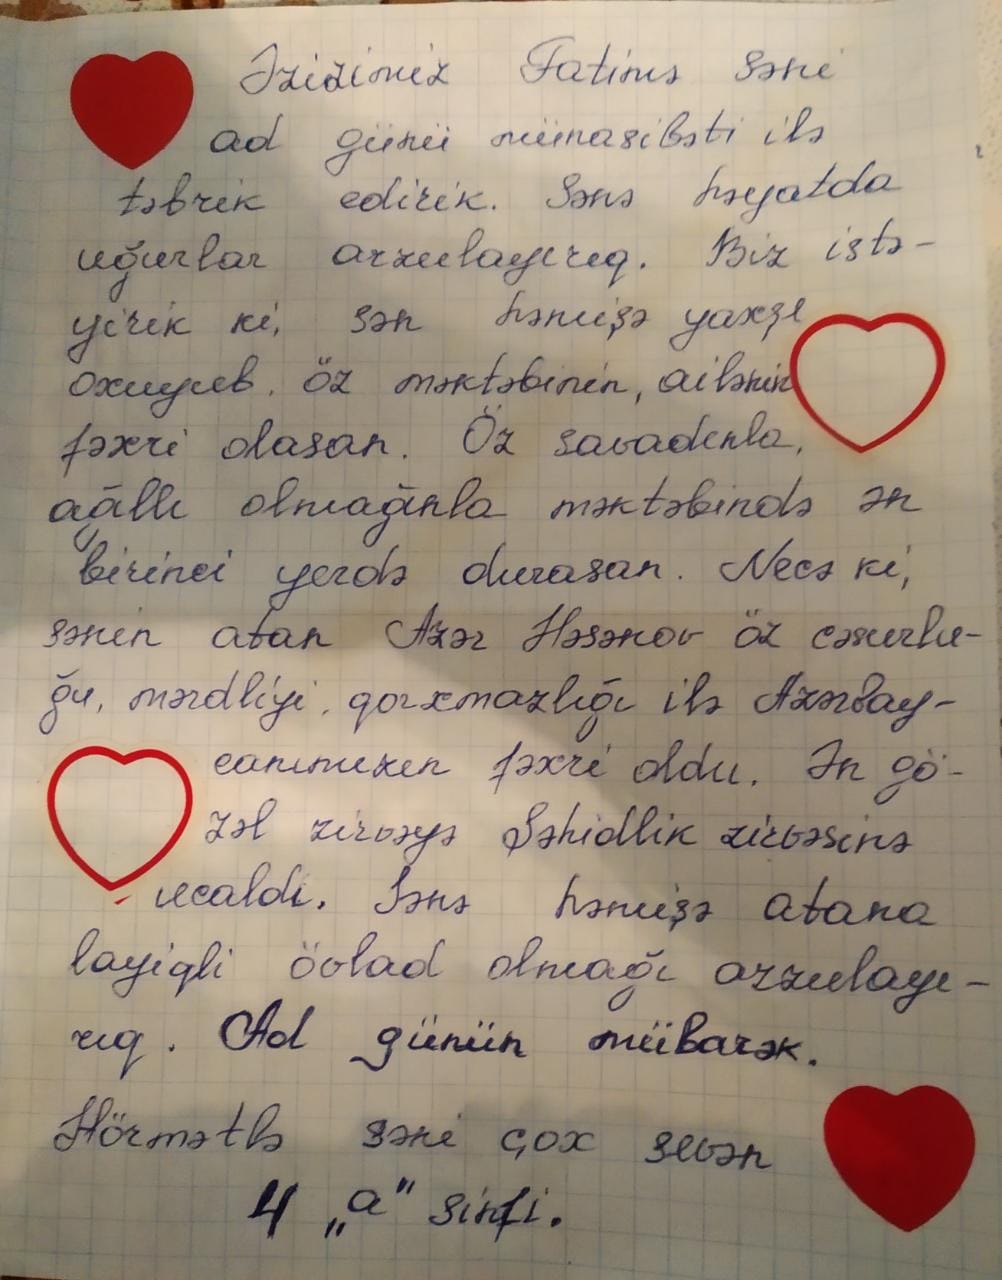 Əzizimiz Fatimə səni
ad günü münasibəti ilə
təbrik edirik. Sənə həyatda
uğurlar arzulayırıq. Biz istə-
yirik ki, sən həmişə yaxşı
oxuyub, öz məktəbinin, ailənin
fəxri olasan. Öz savadınla,
ağıllı olmağınla məktəbində ən
birinci yerdə durasan. Necə ki,
sənin atan Azər Həsənov öz cəsurlu-
ğu, mərdliyi, qorxmazlığı ilə Azərbay-
canımızın fəxri oldu. Ən gö-
zəl zirvəyə Şəhidlik zirvəsinə
ucaldı. Sənə həmişə atana
layiqli övlad olmağı arzulayı-
rıq. Ad günün mübarək.
Hörmətlə səni çox sevən
4 „a" sinfi.